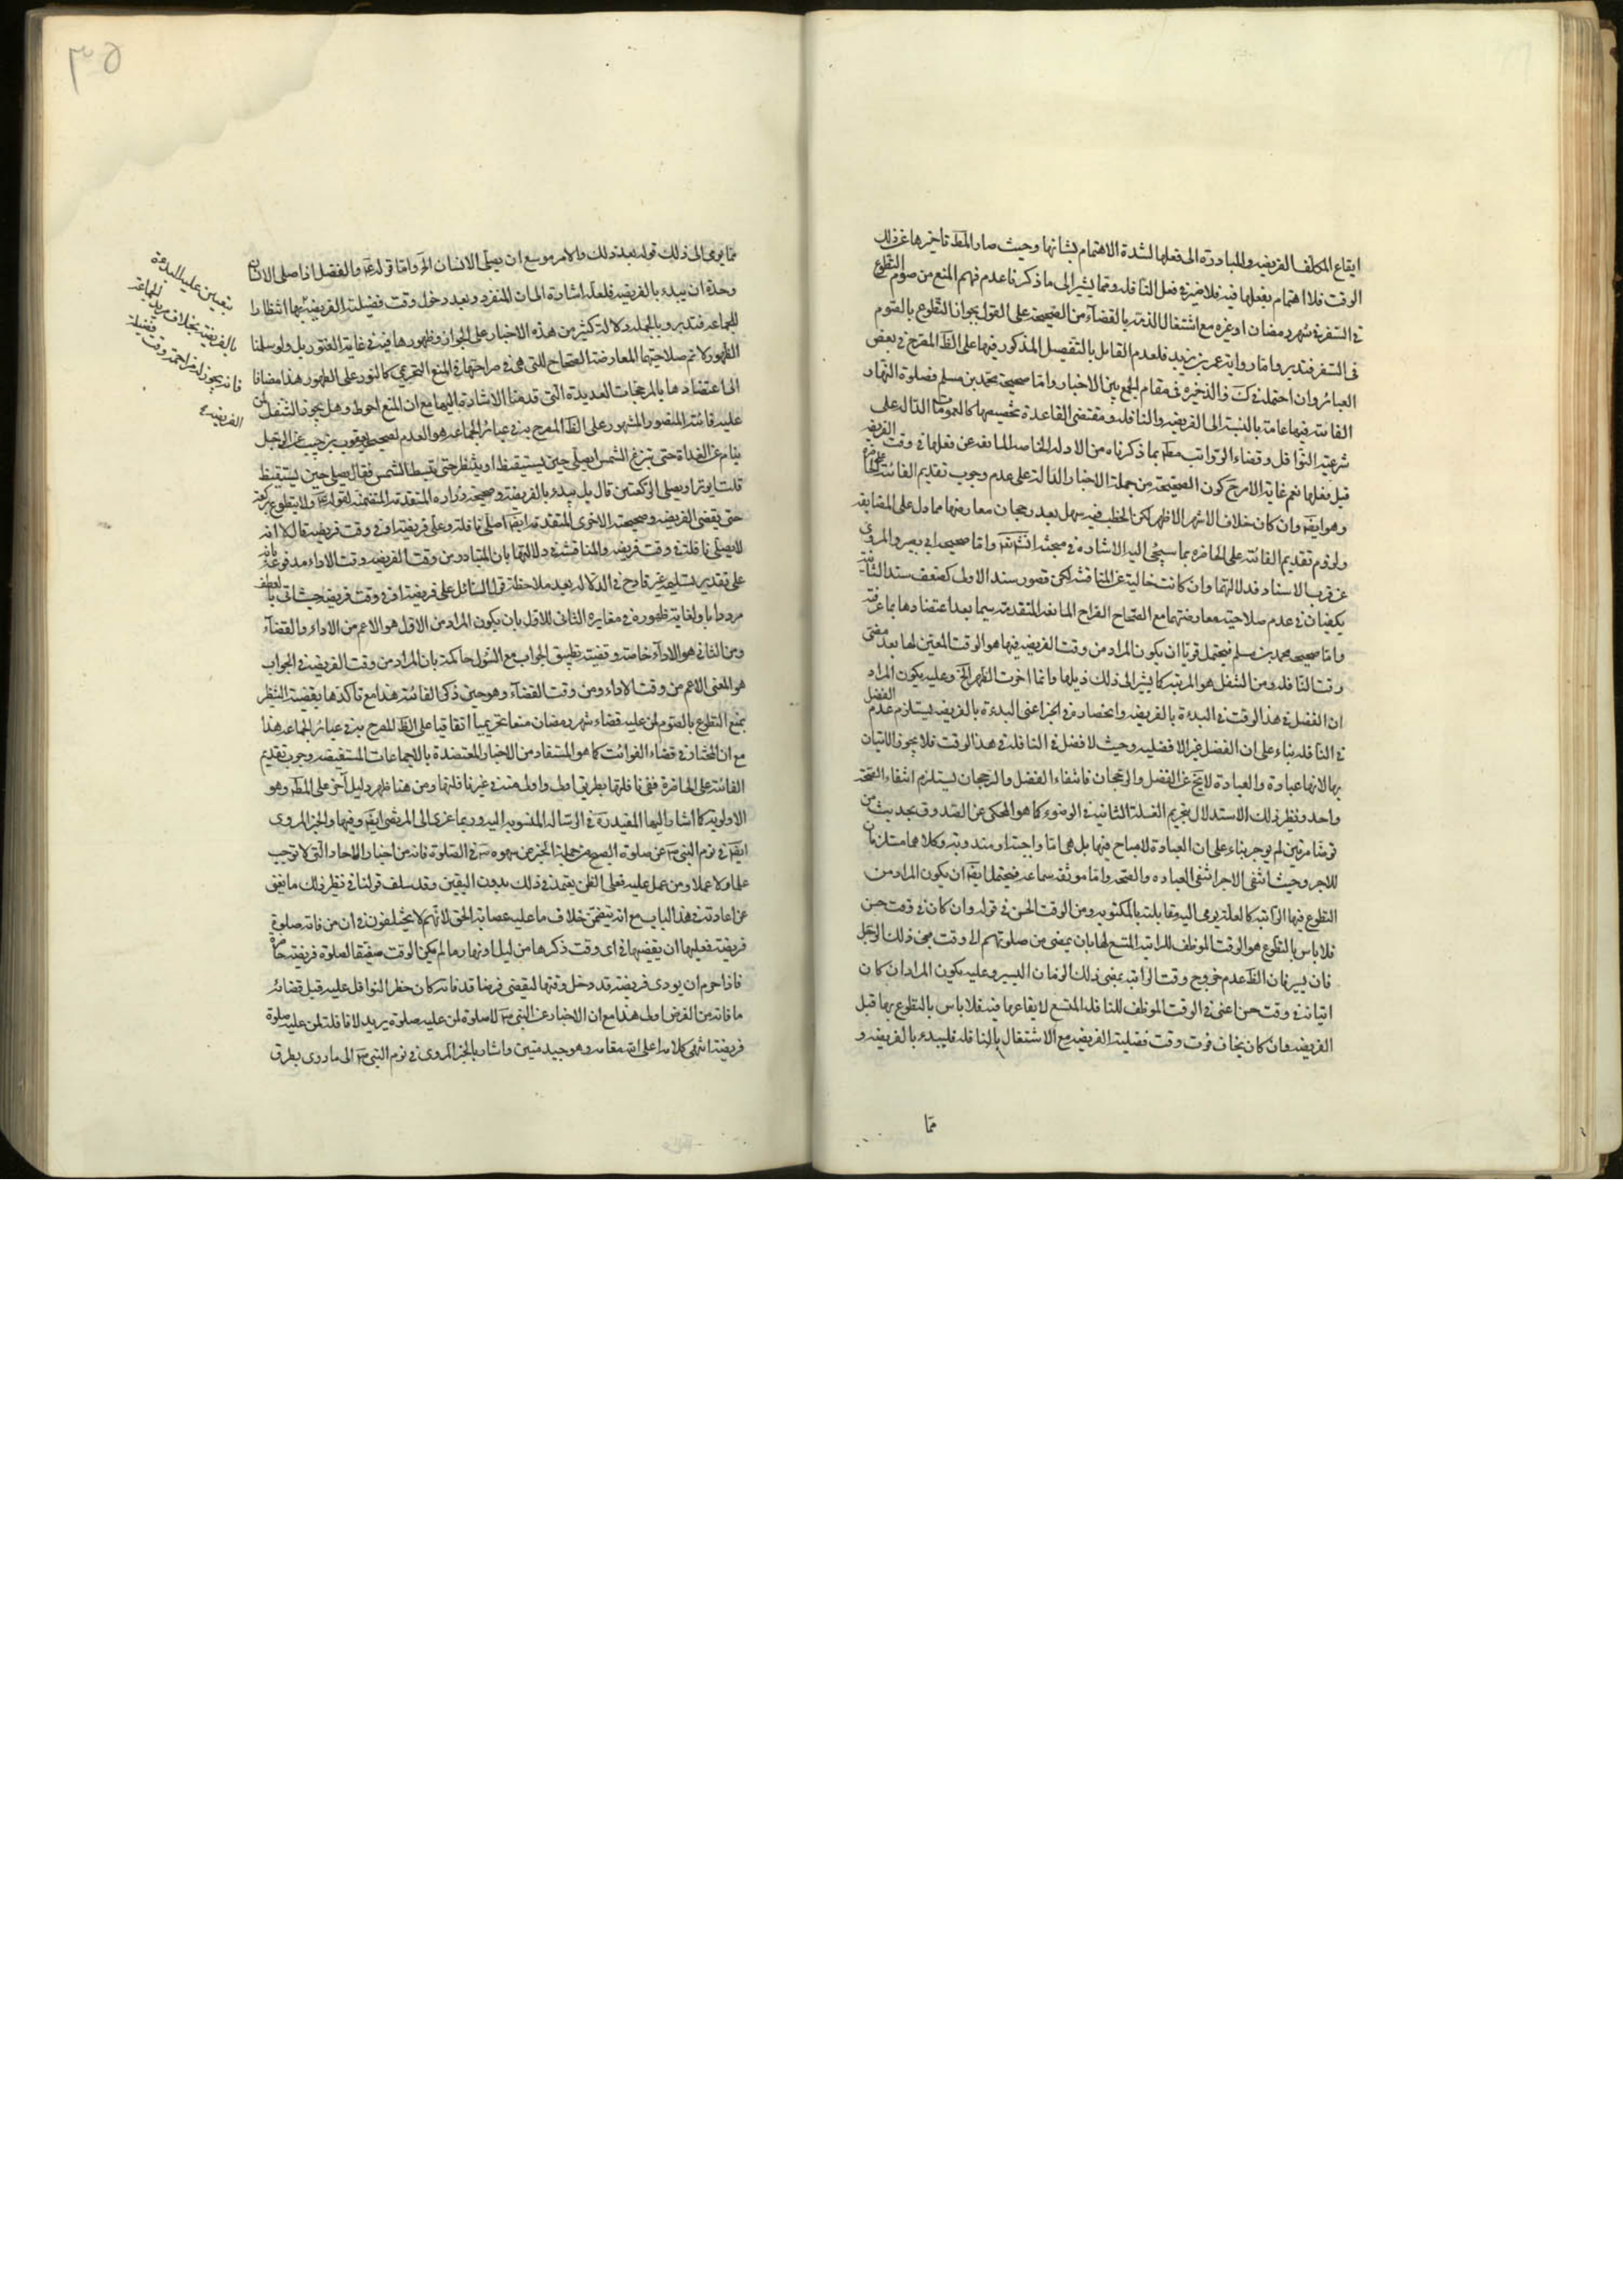 ايقاع المكلف الفريضه والمبادرة الى فعلها لشدة الاهتمام بشانها وحيث صار المط تاخيرها عن ذلك
الوقت فلا اهتمام بفعلها فيه فلا ضير في فعل النافله ومما يشير الى ما ذكرنا عدم فهم المنع من صوم التطوع
في السفر في شهر رمضان او غيره مع اشتغال الذمة بالقضآء من الصحيحة على القول بجواز التطوع بالصوم
في السفر فتدبر واما رواية عمر بن يزيد فلعدم القائل بالتفصيل المذكور فيها على الظ المصرح في بعض
العبائر وان احتمله في ك والذخيره في مقام الجمع بين الاخبار واما صحيحة محمد بن مسلم فصلوة النهار
الفائتة فيها عامة بالنسبة الى الفريضه والنافله ومقتضى القاعدة تخصيصها كالعمومات الدالة على
شرعية النوافل وقضاء الرواتب مط بما ذكرناه من الادلة الخاصه المانعه عن فعلها في وقت الفريضه
قبل فعلها نعم غاية الامر ح كون الصحيحة من جملة الاخبار الدالة على عدم وجوب تقديم الفائتة على الحاضرة
وهو ايض وان كان خلاف الاشهر الاظهر لكن الخطب فيه سهل بعد رجحان معارضها مما دل على المضايقه
ولزوم تقديم الفائته على الحاضره بما سيجئ اليه الاشاره في مبحثه انش تع واما صحيحة ابي بصير والمروي
عن قرب الاسناد فدلالتهما وان كانت خالية عن المناقشه لكن قصور سند الاول كضعف سند الثانية
يكفيان في عدم صلاحية معارضتهما مع الصحاح الصراح المانعه المتقدمه سيما بعد اعتضادها بما عرفته
واما صحيحه محمد بن مسلم فيحتمل قريبا ان يكون المراد من وقت الفريضه فيها هو الوقت المعين لها بعد مضي
وقت النافله ومن التنفل هو المرتبه كما يشير الى ذلك ذيلها وانما اخرت الظهر الخ وعليه يكون المراد
ان الفضل في هذا الوقت في البدءة بالفريضه وانحصاره في الجزء اعني البدءة بالفريضه يستلزم عدم الفضل
في النافله بناء على ان الفضل غير الافضليه وحيث لا فضل في النافلة في هذا الوقت فلا يجوز الاتيان
بها لانها عبادة والعبادة لا تخ عن الفضل والرجحان فانتفاء الفضل والرجحان يستلزم انتفاء الصحة
واحد ونظير ذلك الاستدلال بتحريم الغسلة الثانيه في الوضوء كما هو المحكي عن الصدوق بحديث من
توضا مرتين لم يوجر بناء على ان العبادة لا مباح فيها بل هي اما واجبة او مندوبة وكلاهما مستلزمان
للاجر وحيث انتفى الاجر انتفى العباده والصحه واما موثقه سماعه فيحتمل ايض ان يكون المراد من
التطوع فيها الراتبه كما لعله يومي اليه مقابلته بالمكتوبه ومن الوقت الحسن في قوله وان كان في وقت حسن
فلا باس بالتطوع هو الوقت الموظف للراتبه المتسع لها بان يمضي من صلوتهم الى وقت مجئ ذلك الرجل
فان يسير فان الظ عدم خروج وقت الراتبه بمضي ذلك الزمان اليسير وعليه يكون المراد ان كان
اتيانه في وقت حسن اعني في الوقت الموظف للنافله المتسع لايقاعها فيه فلا باس بالتطوع بها قبل
الفريضه وان كان يخاف فوت وقت فضيلة الفريضه مع الاشتغال بالنافله فليبدء بالفريضه و
مما
٣٥
مما يومي الى ذلك قوله بعد ذلك والامر موسع ان يصلي الانسان الخ واما قوله ع والفضل اذا صلى الانسان
وحده ان يبدء بالفريضه فلعله اشارة الى ان المنفرد بعد دخول وقت فضيلة الفريضة
يتعين عليه البدءة
بالفريضه بخلاف مريد الجماعة
فانه يجوز له مزاحمة وقت فضيلة
الفريضه
انتظارا
للجماعه فتدبر وبالجمله دلالة كثير من هذه الاخبار على الجواز وظهورها فيه في غاية الفتور بل ولو سلمنا
الظهور لا تم صلاحيتها لمعارضة الصحاح التي هي في صراحتها في المنع التحريمي كالنور على الطور هذا مضافا
الى اعتضادها بالمرجحات العديدة التي قدمنا الاشارة اليها مع ان المنع احوط وهل يجوز التنفل لمن
عليه فائتة المنصور والمشهور على الظ المصرح به في عبائر الجماعه هو العدم لصحيحة يعقوب بن شعيب عن الرجل
ينام عن الغداة حتى تبزغ الشمس ايصلي حين يستيقظ او ينتظر حتى تنبسط الشمس فقال يصلي حين يستيقظ
قلت يوتر او يصلي الركعتين قال بل يبدء بالفريضة وصحيحه زراره المتقدمه المتضمنه لقوله ع ولا يتطوع بركعة
حتى يقضي الفريضه وصحيحته الاخرى المتقدمه ايض اصلي نافلة وعلي فريضة او في وقت فريضه قال لا انه
لا يصلى نافلة في وقت فريضه والمناقشه في دلالتها بان المتبادر من وقت الفريضه وقت الاداء مدفوعة بانه
على تقدير تسليمه غير قادح في الدلاله بعد ملاحظة قول السائل علي فريضة او في وقت فريضه حيث اتى بالعطف
مرددا باو لغاية ظهوره في مغايرة الثاني للاول بان يكون المراد من الاول هو الاعم من الاداء والقضآء
ومن الثاني هو الادآء خاصة وقضية تطبيق الجواب مع السؤل حاكمة بان المراد من وقت الفريضه في الجواب
هو المعنى الاعم من وقت الاداء ومن وقت القضآء وهو حين ذكر الفائته هذا مع تاكدها بقضية النظر
بمنع التطوع بالصوم لمن عليه قضاء شهر رمضان منعا تحريميا اتفاقيا على الظ المصرح به في عبائر الجماعه هذا
مع ان المختار في قضاء الفوائت كما هو المستفاد من الاخبار المعتضدة بالاجماعات المستفيضه وجوب تقديم
الفائتة على الحاضرة ففي نافلتها بطريق اولى واولى منه في غير نافلتها ومن هنا ظهر دليل آخر على المط وهو
الاولويه كما اشار اليها المفيد ره في الرساله المنسوبه اليه وربما عزي الى المرتضى ايض وفيها والخبر المروي
ايض في نوم النبي ص عن صلوة الصبح من جملة الخبر عن سهوه ص في الصلوة فانه من اخبار الاحاد التي لا توجب
علما ولا عملا ومن عمل عليه فعلى الظن يعتمد في ذلك بدون اليقين وقد سلف قولنا في نظير ذلك ما يغني
عن اعادته في هذا الباب مع انه يتضمن خلاف ما عليه عصابة الحق لانهم لا يختلفون في ان من فاته صلوة
فريضة فعليه ان يقضيها في اى وقت ذكرها من ليل او نهار ما لم يكن الوقت مضيقا لصلوة فريضة حاضرة
فاذا حرم ان يودي فريضة قد دخل وقتها ليقضي فرضا قد فاته كان حظر النوافل عليه قبل قضائه
ما فاته من الفرض اولى هذا مع ان الاخبار عن النبي ص لا صلوة لمن عليه صلوة يريد لا نافلة لمن عليه صلوة
فريضة انتهى كلامه اعلى الله مقامه وهو جيد متين واشار بالخبر المروي في نوم النبي ص الى ما روى بطرق